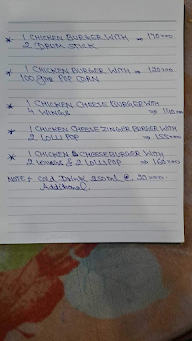 * 1 CHICKEN BURGER WITH ⇒ 170.00
2 DRUM STICK
* 1 CHICKEN BURGER WITH ⇒ 120.00
100 gms POP CORN
* 1 CHICKEN CHEESE BURGER WITH
4 WINGS ⇒
* 1 CHICKEN CHEESE ZINGER BURGER WITH
2 LOLLI POP ⇒ 155.00
* 1 CHICKEN CHEESE BURGER WITH
2 WINGS & 2 LOLLIPOP ⇒ 160.00
NOTE : Cold Drink 250ml @ 20.00
Additional.